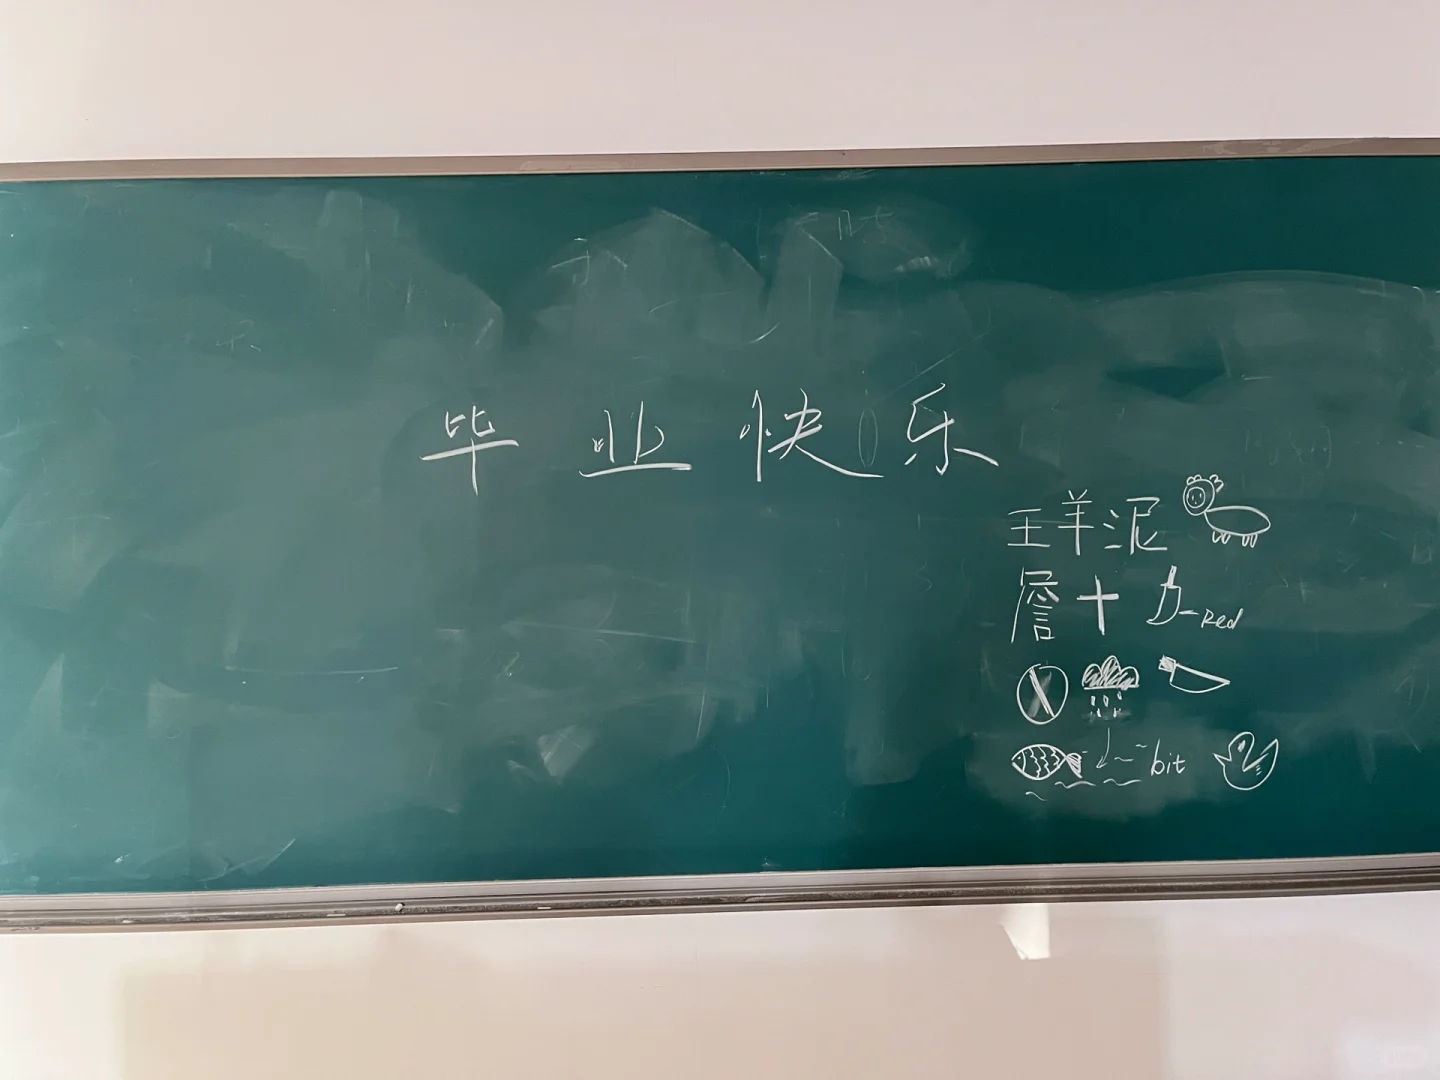 毕业快乐
王羊泥
詹十 -Red
bit